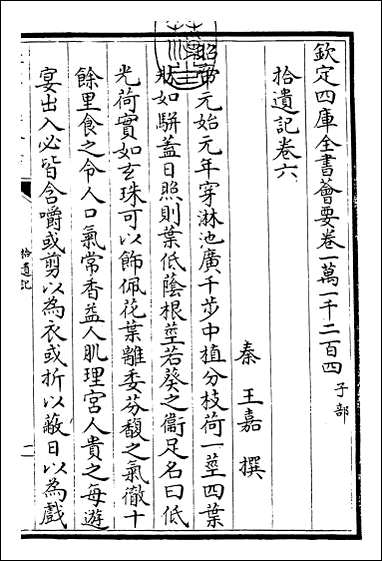 欽定四庫全書薈要卷一萬一千二百四 子部
拾遺記卷六
秦 王嘉 撰
昭帝元始元年穿淋池廣千步中植分枝荷一莖四葉
狀如駢蓋日照則葉低蔭根莖若葵之衞足名曰低
光荷實如玄珠可以飾佩花葉雖委芬馥之氣徹十
餘里食之令人口氣常香益人肌理宮人貴之每遊
宴出入必皆含嚼或剪以為衣或折以蔽日以為戲
拾遺記